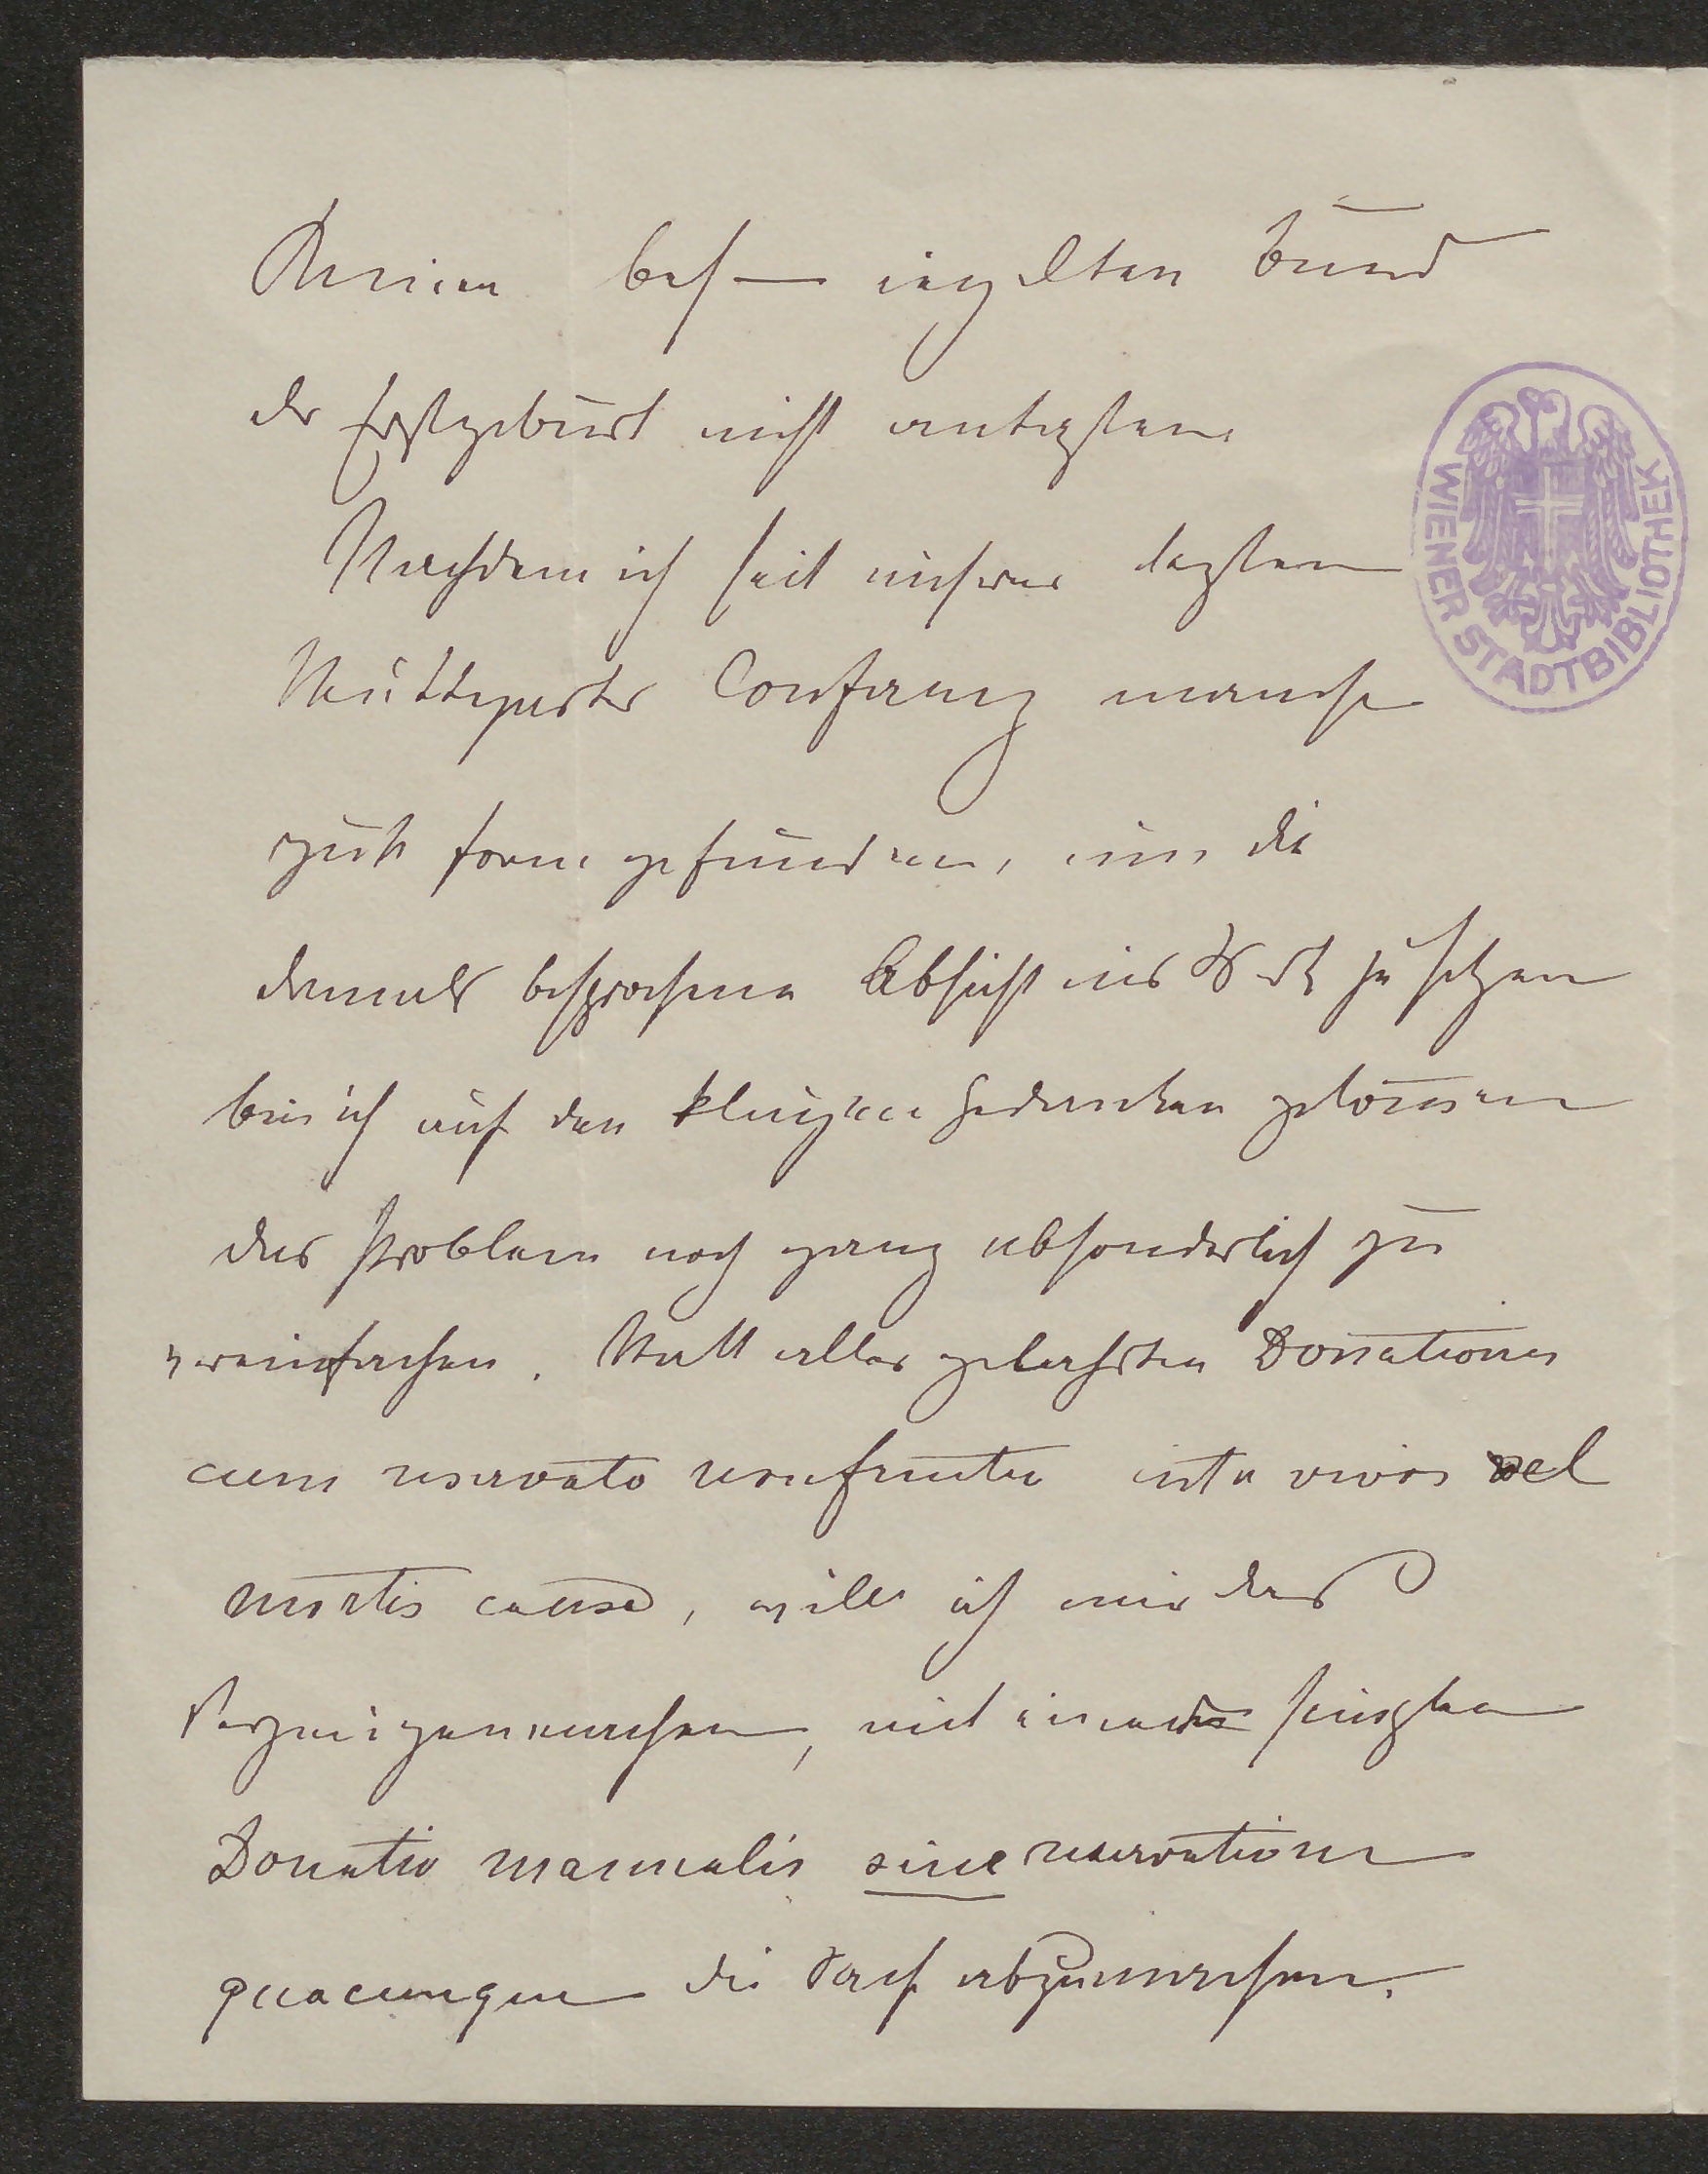 der Erstgeburt nicht antasten.
Nachdem ich seit unserer letzten
Stuttgarter Conferenz manche
gute Form gefunden, um die
damals besprochene Absicht ins Werk zu setzen
bin ich auf den klugen Gedanken gekom̅en
das Problem noch ganz absonderlich zu
vereinfachen. Statt aller gelehrten Donationes
cum reservato usufructu inter vivos vel
mortis causa, will ich mir das
Vergnügen machen, mit einer simplen
Donatio manualis sine reservatione
quacunque die Sache abzumachen.
WIENER STADTBIBLIOTHEK